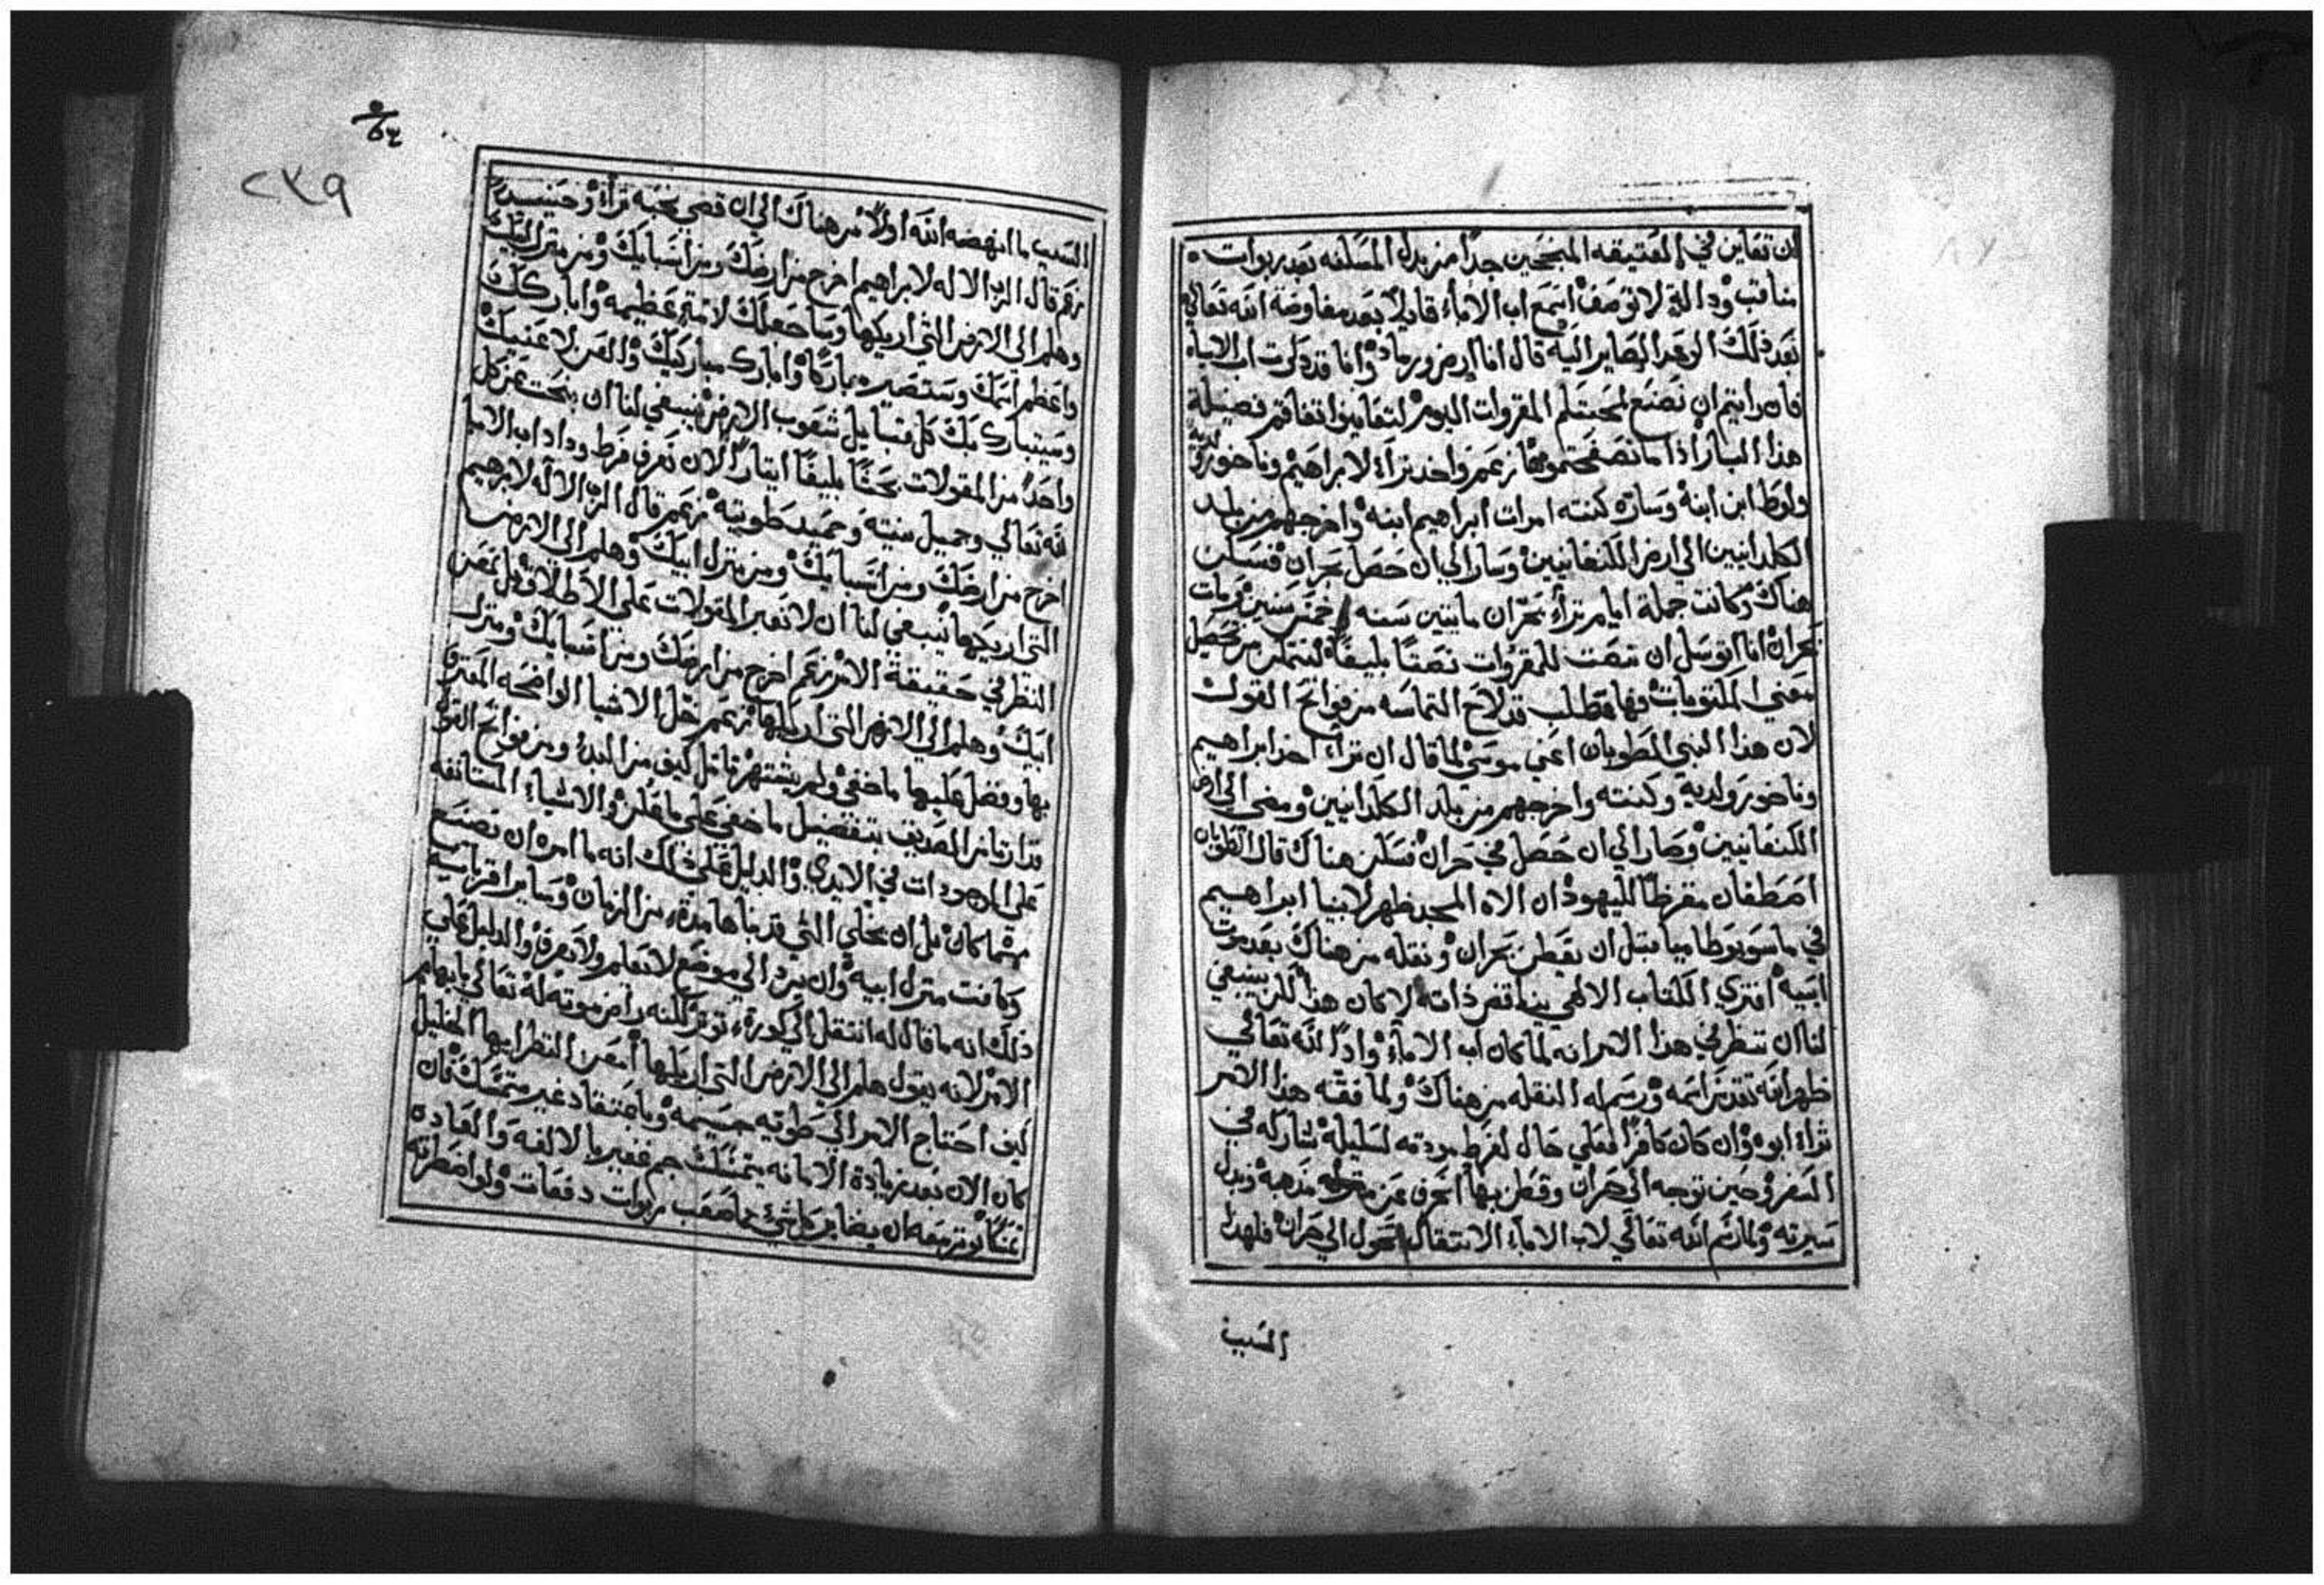 ان تعاين في العتيقه المنجحين جدا من بدل المسلنه بعد ربوات
مناقب وداللة لا توصف اسمع اب الاماء قايلاً بعد مفاوضة الله تعالي
بعد ذلك الوعد الصاير اليه قال انا ارض ورماد وانا قد دلوت اب الاباء
فان رايتم ان نضع لمحبتكم المقروات اليوم لتعاينوا تفاقم فضيلة
هذا البار اذا ما تصفحتموها زعم واخد تراء لابراهيم وناحور ولديه
ولوط ابن ابنه وساره كنته امرات ابراهيم ابنه واخرجهم من بلد
الكلدانيين الي ارض الكنعانيين وسار الي ان حصل بحران فسكن
هناك وكانت جملة ايام تراء بحران مايتين سنه وخمس سنين ومات
بحران انا اتوسل ان تنصت للمقروات نصتا بليغاً لنتمكن من تحصيل
معني المكتوبات فها مطلب قد لاح التماسه من فواتح القول
لان هذا النبي المطوبان اعني موسي لما قال ان تراء اخذ ابراهيم
وناحور ولديه وكنته واخرجهم من بلد الكلدانيين ومضي الي ارض
الكنعانيين وصار الي ان حصل في حران فسكن هناك قال الطوبان
اصطفان مقرظاً لليهود ان الاه المجد ظهر لابينا ابراهيم
في ماسوبوطاميا قبل ان يقطن بحران ونقله من هناك بعد موت
ابيه افتري الكتاب الالهي يناقض ذاته لا كان هذا لكن ينبغي
لنا ان ننظر في هذا الامر انه لما كان اب الاماء واداً لله تعالي
ظهر الله تقدس اسمه ورسم له النقله من هناك ولما فقه هذا الامر
تراء ابوه وان كان كافراً فعلي حال لفرط مودته لسليله شاركه في
السفر وحين توجه الي حران وقطن بها انحرف عن مذهبه وبدل
سيرته ولما رسم الله تعالي لاب الاماء الانتقال تحول الي حران فلهذا
السبب
٥٤
٢٣٩
السبب ما انهضه الله اولاً من هناك الي ان قضي نحبه تراء وحينيذ
زعم قال الرب الاله لابراهيم اخرج من ارضك ومن انسبايك ومن منزل ابيك
وهلم الي الارض التي اريكها وساجعلك لامة عظيمه واباركك
واعظم اسمك وستصير مباركاً وابارك مباركيك والعن لاعنيك
وسيتبارك بك كل قبايل شعوب الارض ينبغي لنا ان نبحث عن كل
واحد من المقولات بحثاً بليغاً ايثاراً لان نعرف فرط وداد اب الاماء
لله تعالي وجميل سنته وحميد طويته زعم قال الرب الاله لابرهيم
اخرج من ارضك ومن انسبايك ومن منزل ابيك وهلم الي الارض
التي اريكها ينبغي لنا ان لا نعبر المقولات علي الاطلاق بل نمعن
النظر في حقيقة الامر زعم اخرج من ارضك ومن انسبايك ومنزل
ابيك وهلم الي الارض التي اريكها زعم خل الاشيا الواضحه المعترف
بها وفضل عليها ما خفي ولم يشتهر تامل كيف من البدء ومن فواتح القول
قد ارتاض الصديق بتفضيل ما خفي علي ما علن والاشياء المستانفه
علي الموجودات في الايدي والدليل علي ذلك انه ما امره ان يصنع
شيا كان بل ان يخلي التي قد بناها مدة من الزمان وساير اقربايه
وكانت منزل ابيه وان يرد الي موضع لا يعلم ولا يعرف والدليل علي
ذلك انه ما قال له انتقل الي كورة توثر لكنه رامز موته له تعالي بابهام
الامر لانه يقول هلم الي الارض التي اريكها امعن النظر ايها الخليل
كيف احتاج الامر الي طوية جسيمه وباعتقاد غير متمسك فان
كان الان بعد زيادة الامانه يتمسك جم غفير بالالفه والعاده
تمسكاً توثر معه ان يضاير كل شيء صعب ربوات دفعات ولو اضطرته